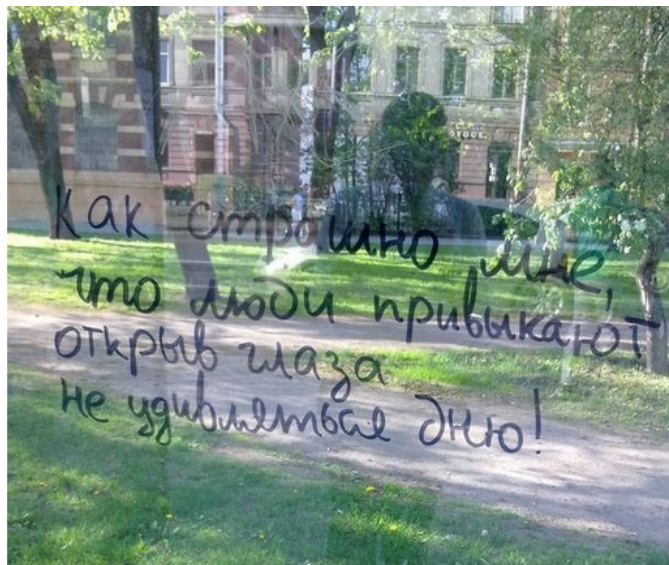 как страшно мне,
что люди привыкают
открыв глаза
не удивляться дню!